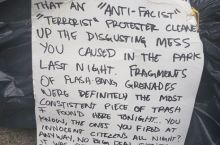 THAT AN "ANTI-FACIST"
"TERRORIST" PROTESTER CLEANE
UP THE DISGUSTING MESS
YOU CAUSED IN THE PARK
LAST NIGHT. FRAGMENTS
OF FLASH-BANG GRENADES
WERE DEFINITELY THE MOST
CONSTISTENT PIECE OF TRASH
I FOUND HERE TONIGHT.. YOU
KNOW, THE ONES YOU FIRED AT
INNOCENT CITIZENS ALL NIGHT?
ANYWAY, NO BIG DEAL